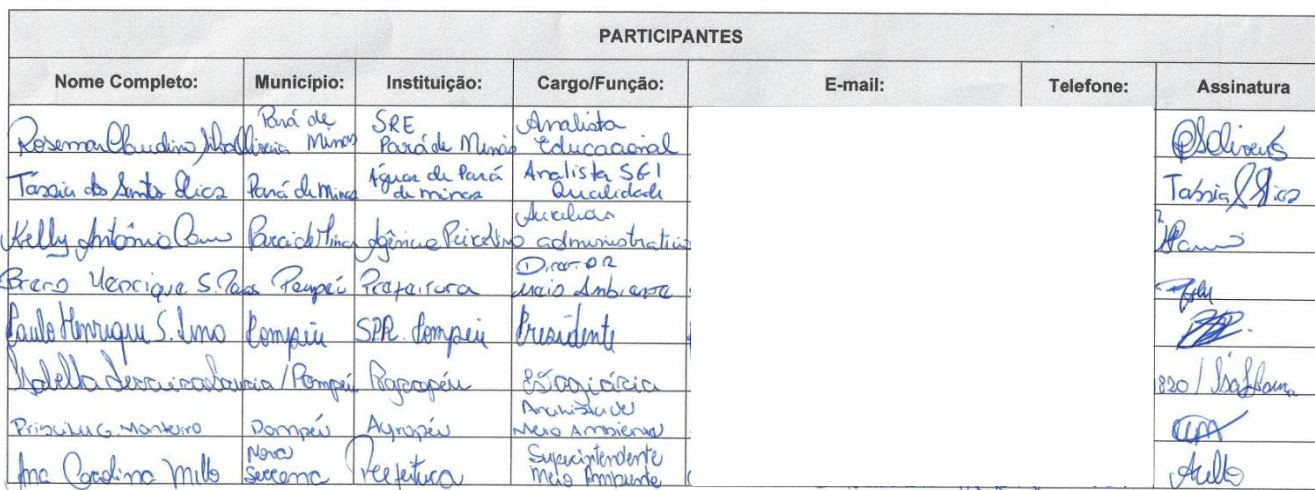 PARTICIPANTES
Nome Completo: Município: Instituição: Cargo/Função: E-mail: Telefone: Assinatura
Pará de Minas SRE Pará de Minas Analista Educacional
Tássia dos Santos Pará de Minas Águas de Pará de minas Analista SGI Qualidade Tássia
Kelly Antônia Pará de Minas Agência Auxiliar administrativo
Breno Henrique S. Pompéu Prefeitura Diretor Meio Ambiente
Paulo Henrique S. Lino Pompéu SPR. Pompéu Presidente
Isabella / Pompéu Agropéu Estagiária 820 /
Priscila G. Monteiro Pompéu Agropéu Analista de Meio Ambiente
Ana Carolina Mello Nova Serrana Prefeitura Superintendente Meio Ambiente